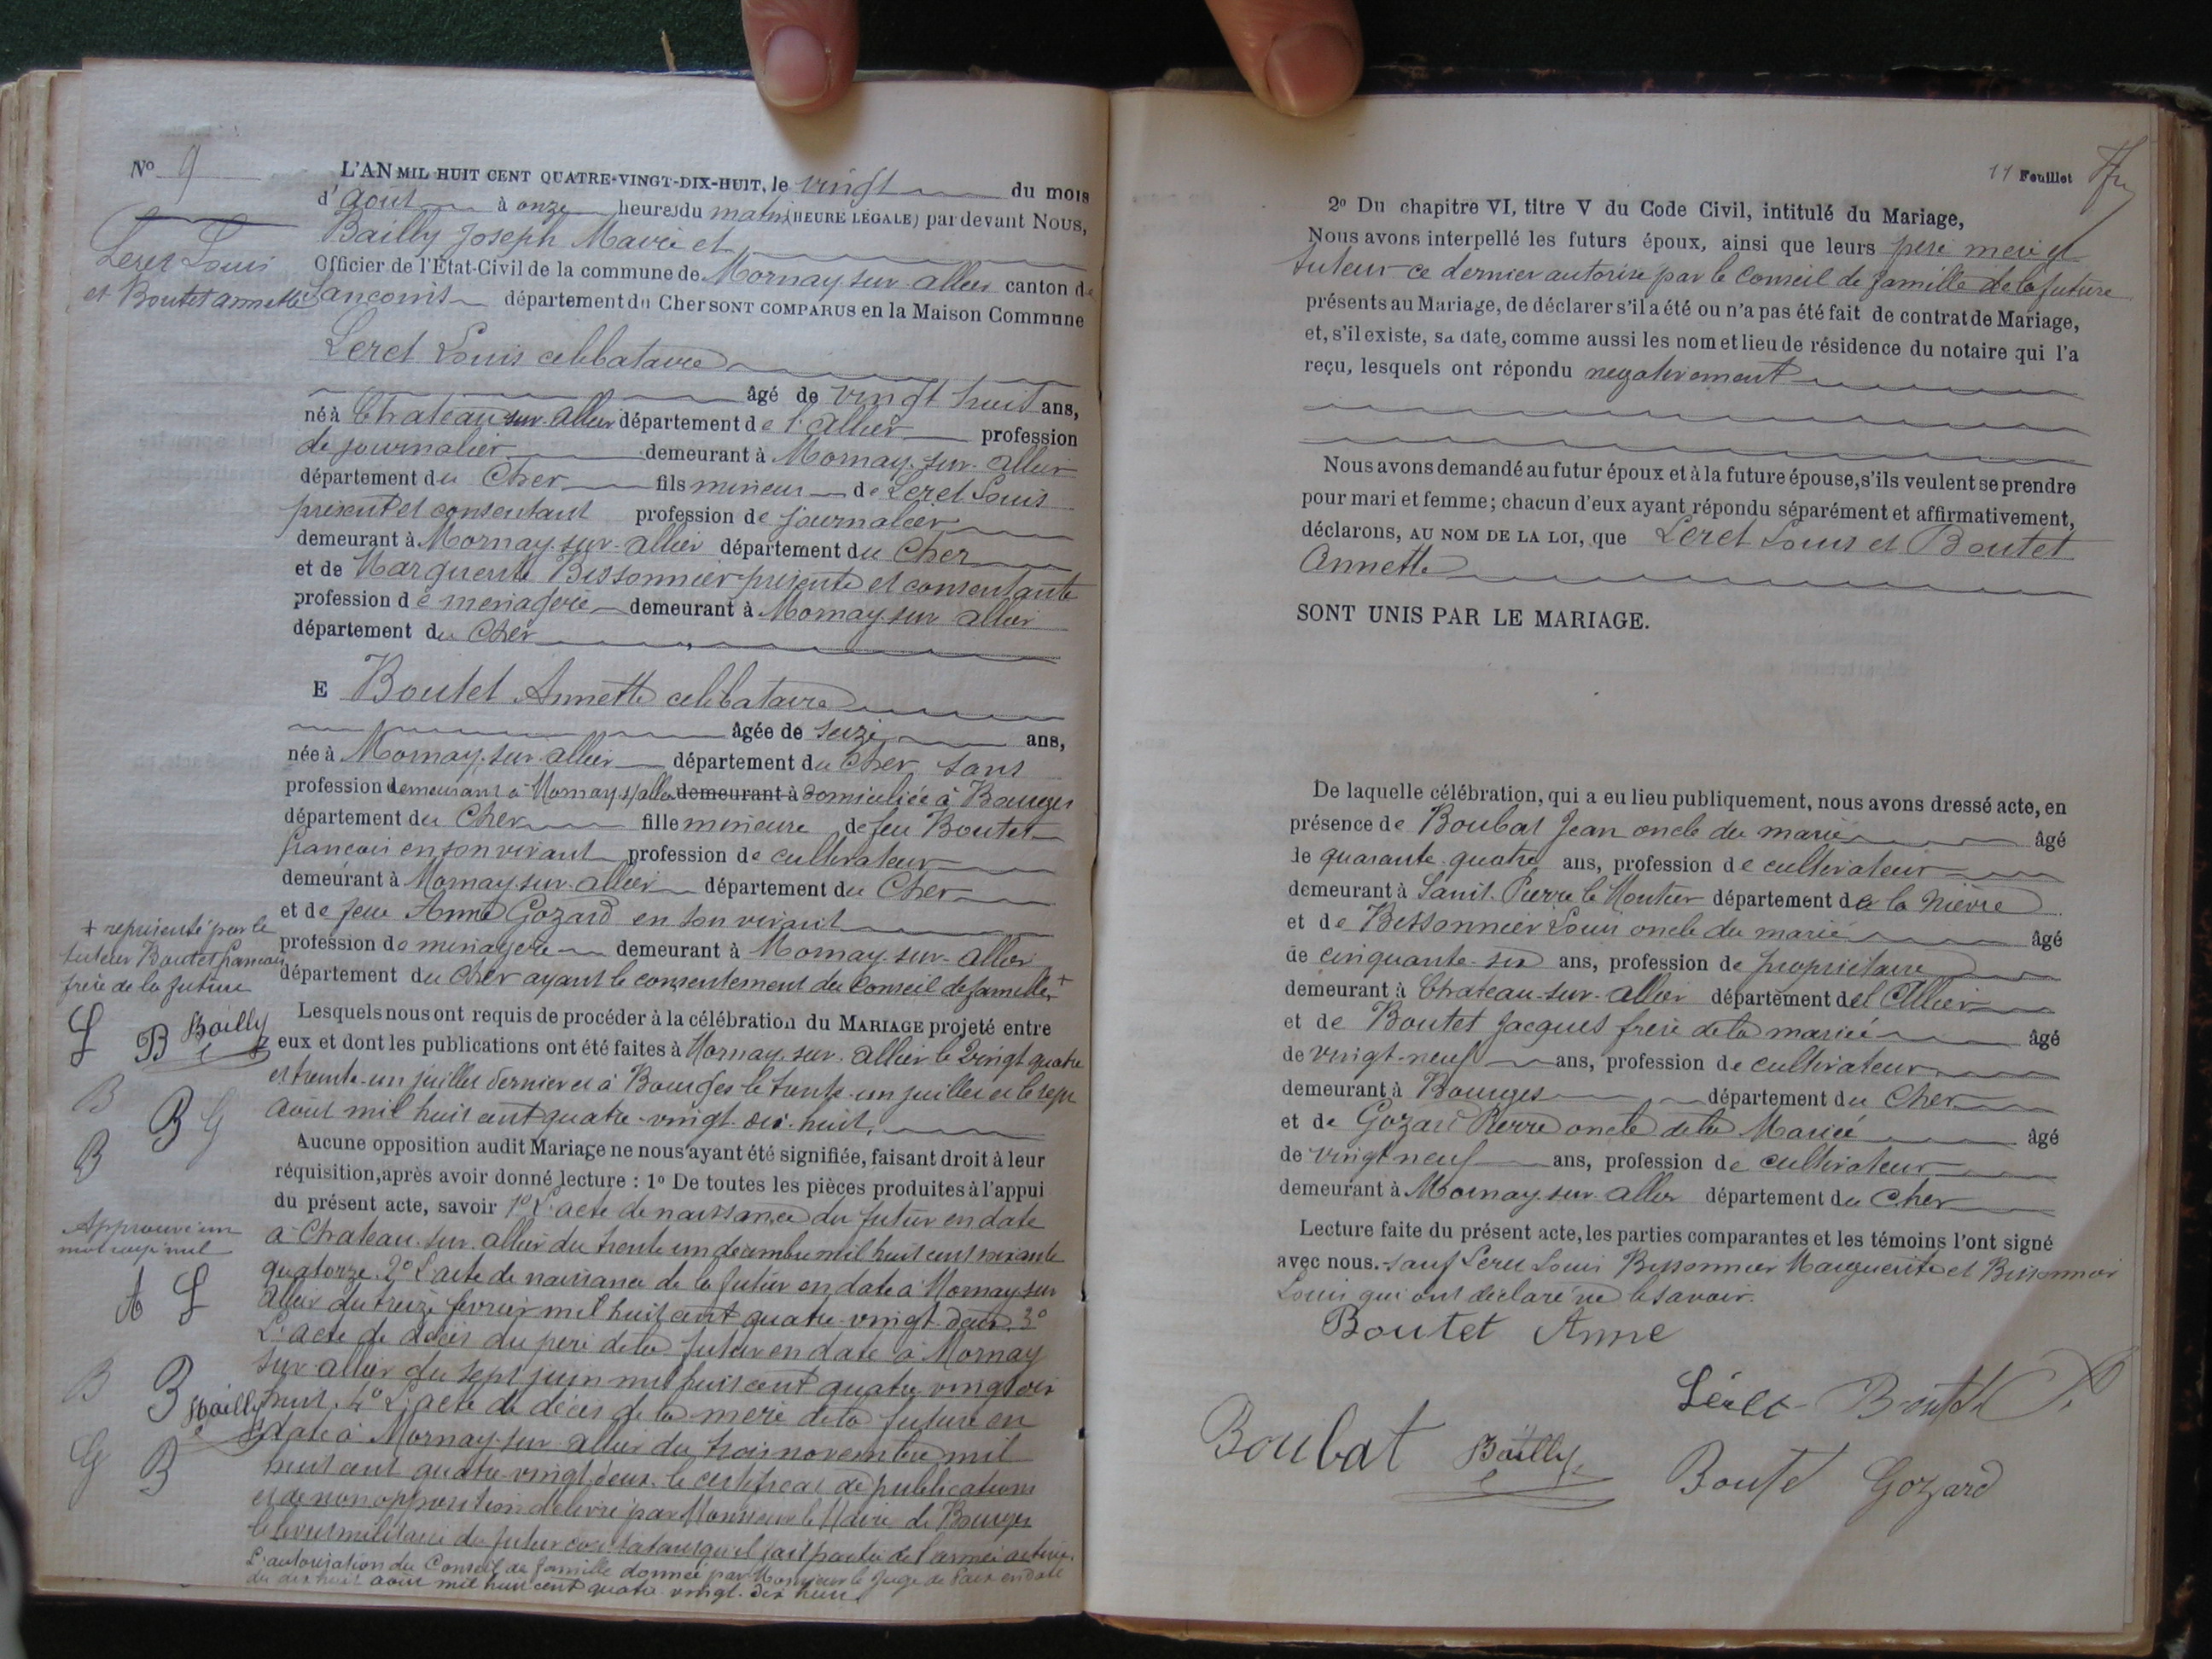 No 9
L'AN MIL HUIT CENT QUATRE-VINGT-DIX-HUIT, le vingt du mois
d'août à onze heures du matin (HEURE LÉGALE) par devant Nous,
Bailly Joseph Maire et
Officier de l'État-Civil de la commune de Mornay-sur-allier canton de
Sancoins département du Cher SONT COMPARUS en la Maison Commune
Leret Louis
et Boutet annette
Leret Louis celibataire
âgé de vingt trois ans,
né à Chateau-sur-allier département de l'allier profession
de journalier demeurant à Mornay-sur-allier
département du Cher fils mineur de Leret Louis
présent et consentant profession de journalier
demeurant à Mornay-sur-allier département du Cher
et de Marguerite Bissonnier présente et consentante
profession de menagere demeurant à Mornay-sur allier
département du Cher
E Boutet Annette celibataire
âgée de seize ans,
née à Mornay-sur-allier département du Cher sans
profession demeurant à Mornay s/allier demeurant à domiciliée à Bourges
département du Cher fille mineure de feu Boutet
francois en son vivant profession de cultivateur
demeurant à Mornay-sur-allier département du Cher
et de feue Anne Gozard en son vivant
profession de menagere demeurant à Mornay-sur-allier
département du Cher ayant le consentement du Conseil de famille +
+ représenté par le
tuteur Boutet francois
frère de la future
L B Bailly
B B G
B
Lesquels nous ont requis de procéder à la célébration du MARIAGE projeté entre
eux et dont les publications ont été faites à Mornay-sur-allier le vingt quatre
et trente-un juillet dernier et à Bourges le trente-un juillet et le sept
août mil huit cent quatre-vingt-dix-huit.
Aucune opposition audit Mariage ne nous ayant été signifiée, faisant droit à leur
réquisition, après avoir donné lecture : 1o De toutes les pièces produites à l'appui
du présent acte, savoir 1o L'acte de naissance du futur en date
à Chateau-sur-allier du trente un decembre mil huit cent soixante
quatorze. 2o L'acte de naissance de la futur en date à Mornay sur
allier du treize fevrier mil huit cent quatre-vingt-deux. 3o
L'acte de décès du pere de la futur en date à Mornay
sur-allier du sept juin mil huit cent quatre vingt dix
huit. 4o L'acte de décès de la mere de la future en
date à Mornay-sur-allier du trois novembre mil
huit cent quatre-vingt deux. le certificat de publications
et de non opposition délivré par Monsieur le Maire de Bourges
le livret militaire du futur constatant qu'il fait partie de l'armée active.
L'autorisation du Conseil de famille donnée par Monsieur le Juge de Paix en date
du dix huit août mil huit cent quatre-vingt-dix huit
Approuvé un
mot rayé nul
A L
B B Bailly
G B
11 Feuillet
2o Du chapitre VI, titre V du Code Civil, intitulé du Mariage,
Nous avons interpellé les futurs époux, ainsi que leurs père mere et
tuteur ce dernier autorisé par le Conseil de famille de la future
présents au Mariage, de déclarer s'il a été ou n'a pas été fait de contrat de Mariage,
et, s'il existe, sa date, comme aussi les nom et lieu de résidence du notaire qui l'a
reçu, lesquels ont répondu negativement
Nous avons demandé au futur époux et à la future épouse, s'ils veulent se prendre
pour mari et femme; chacun d'eux ayant répondu séparément et affirmativement,
déclarons, AU NOM DE LA LOI, que Leret Louis et Boutet
Annette
SONT UNIS PAR LE MARIAGE.
De laquelle célébration, qui a eu lieu publiquement, nous avons dressé acte, en
présence de Boubat Jean oncle du marié âgé
de quarante-quatre ans, profession de cultivateur
demeurant à Saint-Pierre le Moutier département de la Nièvre
et de Bissonnier Louis oncle du marié âgé
de cinquante-six ans, profession de propriétaire
demeurant à Chateau-sur-allier département del Allier
et de Boutet Jacques frere de la mariée âgé
de vingt-neuf ans, profession de cultivateur
demeurant à Bourges département du Cher
et de Gozard Pierre oncle de la Mariée âgé
de vingt neuf ans, profession de cultivateur
demeurant à Mornay-sur-allier département du Cher
Lecture faite du présent acte, les parties comparantes et les témoins l'ont signé
avec nous. sauf Leret Louis Bissonnier Marguerite et Bissonnier
Louis qui ont déclaré ne le savoir.
Boutet Anne
Léret Boutet
Boubat Bailly Boutet Gozard